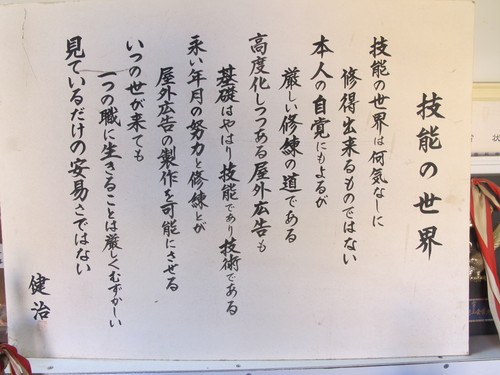 技能の世界
技能の世界は何気なしに
修得出来るものではない
本人の自覚にもよるが
厳しい修練の道である
高度化しつつある屋外広告も
基礎はやはり技能であり技術である
永い年月の努力と修練とが
屋外広告の製作を可能にさせる
いつの世が来ても
一つの職に生きることは厳しくむずかしい
見ているだけの安易さではない
健治
状